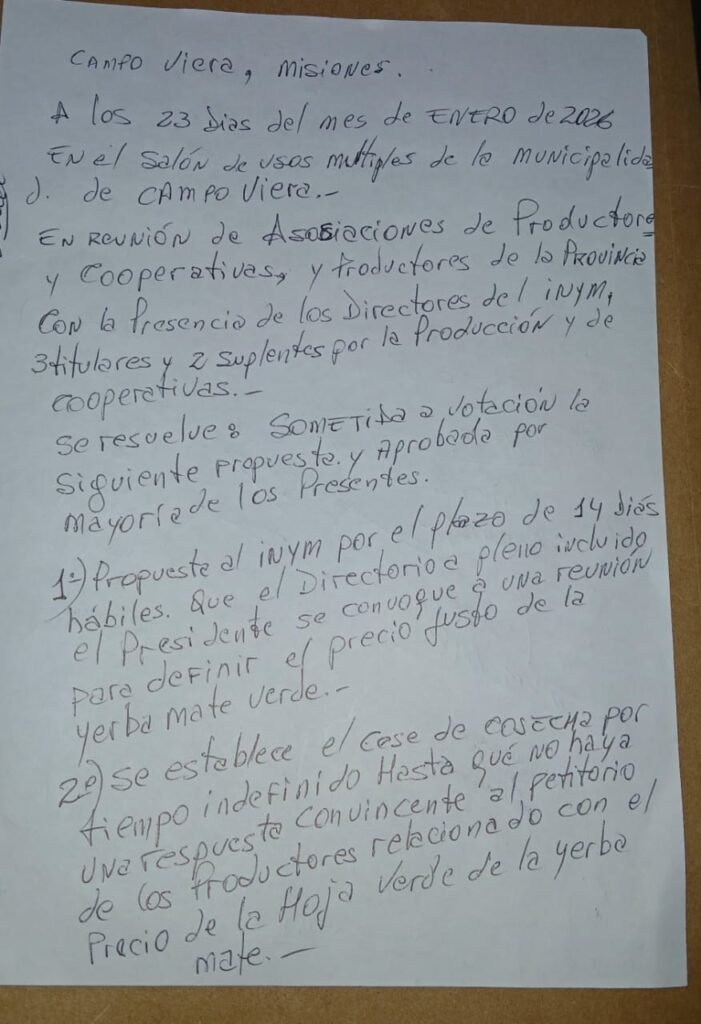 CAMPO Viera, Misiones.
A los 23 Dias del mes de ENERO de 2026
EN el Salón de usos multiples de la municipalida
d. de CAMPO Viera.-
EN REUNIÓN de Asosiaciones de Productore
y Cooperativas, y Productores de la Provincia
Con la Presencia de los Directores del iNYM,
3 titulares y 2 suplentes por la Producción y de
cooperativas.-
Se resuelve: SOMETIDA a votación la
siguiente propuesta. y Aprobada por
mayoría de los Presentes.
1º) Propuesta al iNYM por el plazo de 14 días
hábiles. Que el Directorio a pleno incluido
el Presidente se convoque a una reunión
para definir el precio justo de la
yerba mate verde.-
2º) Se establece el Cese de COSECHA por
tiempo indefinido Hasta qué no haya
una respuesta convincente al petitorio
de los Productores relacionado con el
Precio de la Hoja verde de la yerba
mate.-